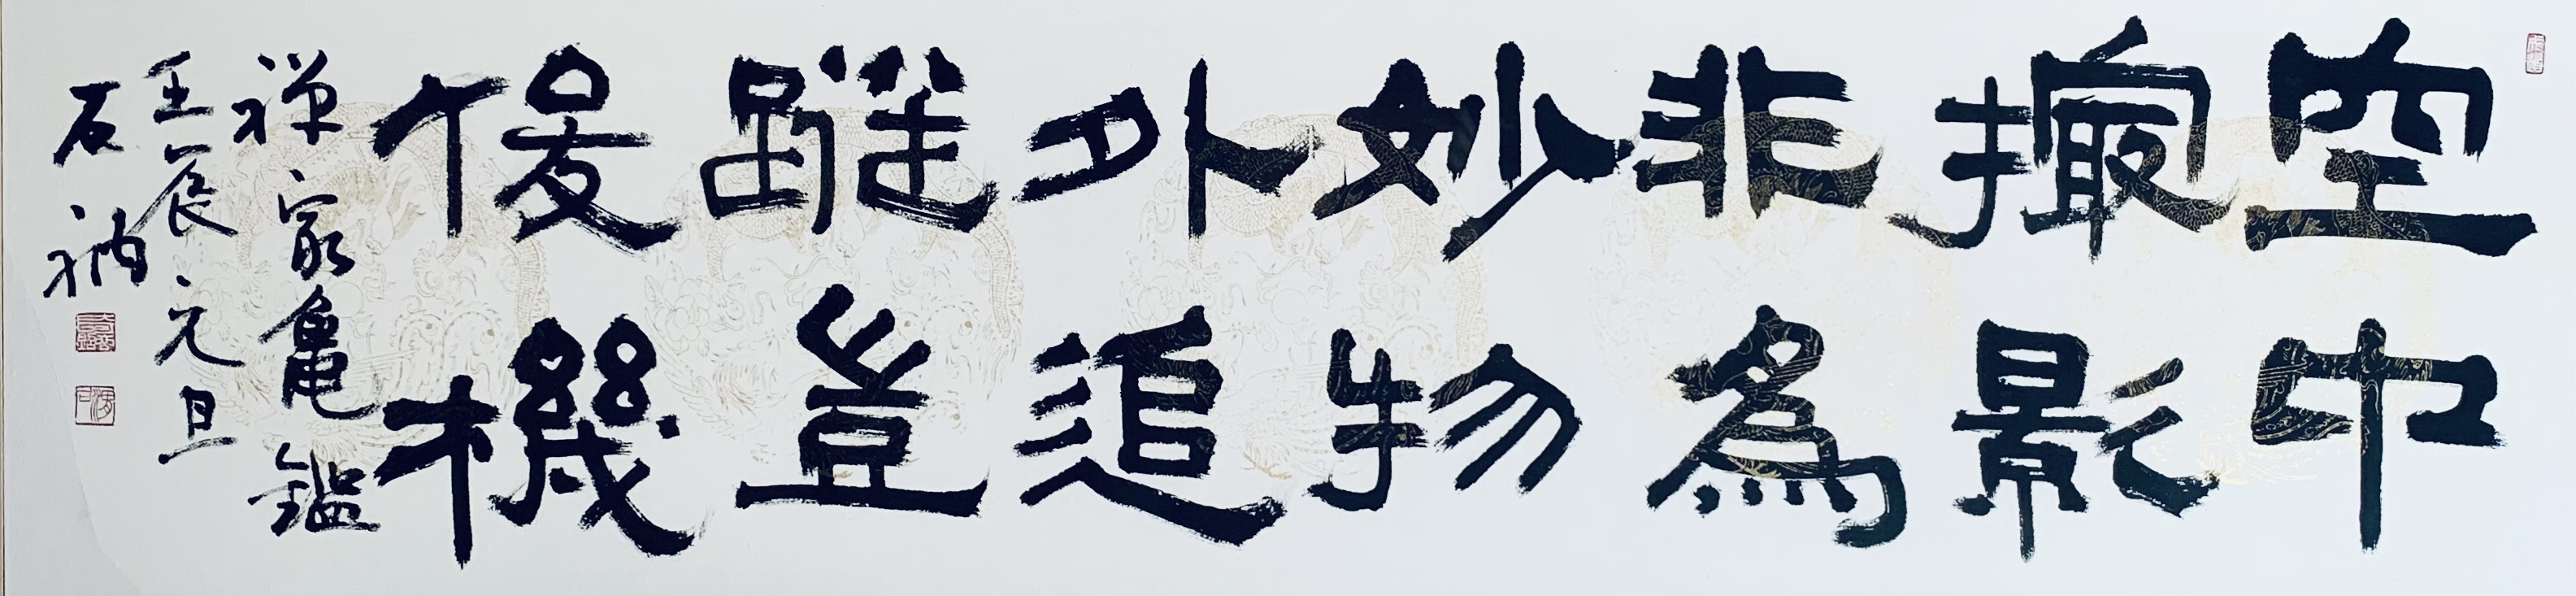 空中
撮影
非為
妙物
外追
蹤豈
俊機
禅家亀鑑
壬辰元旦
石衲